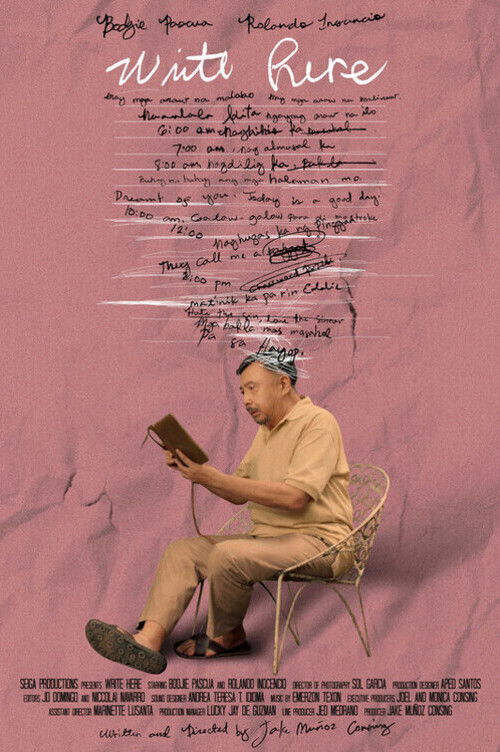 Bodjie Pascua Rolando Inocencio
Write Here
May mga araw na malabo May mga araw na malinaw.
Naaalala kita ngayong araw na ito
6:00 am nagbihis ka
7:00 am, nag almusal ka
8:00 am nagdilig ka,
Buhay na buhay ang mga halaman mo.
Dreamt of you. Today is a good day.
10:00 am. Galaw-galaw para di mastroke
12:00
Naghugas ka ng pinggan
They call me a
2:00 pm
matinik ka pa rin Eddie
Hate the sin, love the sinner
Mga bakla mas masahol
pa sa Hayop!
SEIGA PRODUCTIONS PRESENTS WRITE HERE STARRING BODJIE PASCUA AND ROLANDO INOCENCIO DIRECTOR OF PHOTOGRAPHY SOL GARCIA PRODUCTION DESIGNER APED SANTOS
EDITORS JO DOMINGO AND NICCOLAI NAVARRO SOUND DESIGNER ANDREA TERESA T. IDIOMA MUSIC BY EMERZON TEXON EXECUTIVE PRODUCERS JOEL AND MONICA CONSING
ASSISTANT DIRECTOR MARINETTE LUSANTA PRODUCTION MANAGER LUCKY JAY DE GUZMAN LINE PRODUCER JED MEDRANO PRODUCER JAKE MUÑOZ CONSING
Written and Directed by Jake Muñoz Consing